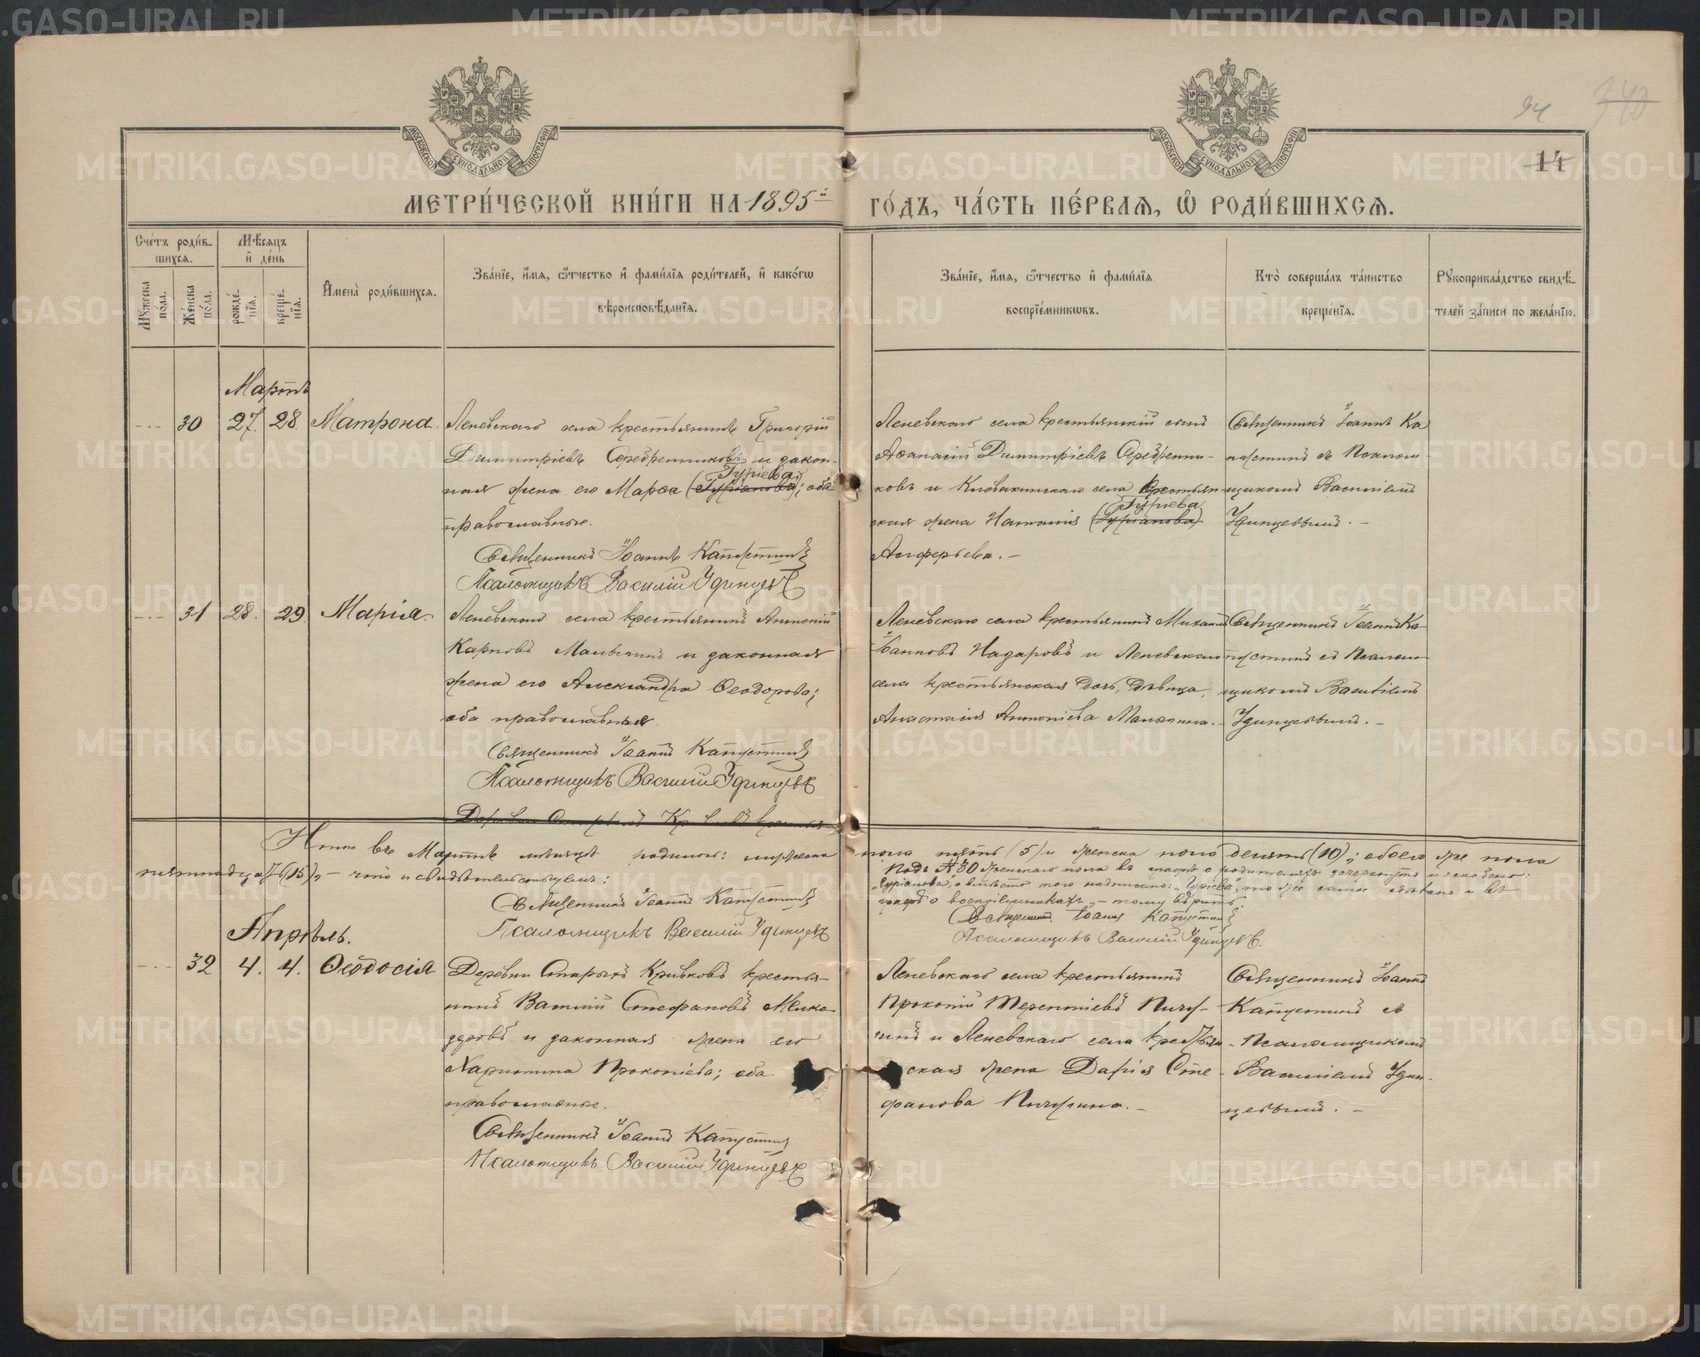 94 740
14
МЕТРИ́ЧЕСКОЙ КНИ́ГИ НА 1895й ГО́ДЪ, ЧА́СТЬ ПЕ́РВАѦ, Ѽ РОДИ́ВШИХСѦ.
Сче́тъ роди́в-
шихсѧ.
Мꙋ́жеска по́ла.
Же́нска по́ла.
Мѣ́сѧцъ
и҆ де́нь
рожде́нїѧ.
креще́нїѧ.
И҆мена̀ роди́вшихсѧ.
Зва́нїе, и҆́мѧ, ѻ҆́тчество и҆ фами́лїѧ роди́телей, и҆ како́гѡ
вѣроисповѣ́данїѧ.
Зва́нїе, и҆́мѧ, ѻ҆́тчество и҆ фами́лїѧ
воспрїе́мникѡвъ.
Кто̀ соверша́лъ та́инство
креще́нїѧ.
Рꙋкоприкла́дство свидѣ́-
телей за́писи по жела́нїю.
Мартъ
30 27. 28 Матрона.
Леневскаго села крестьянинъ Григорій
Димитріевъ Серебренниковъ и закон-
Гуріева
ная жена его Марѳа (Гуріанова); оба
православные.
Священникъ Іоаннъ Капустинъ
Псаломщикъ Василій Удинцевъ
Леневскаго села крестьянскій сынъ
Аѳанасій Димитріевъ Серебренни-
ковъ и села крестьян-
Гуріева
ская жена Наталія (Гуріанова)
Алферьева. —
Священникъ Іоаннъ Ка
пустинъ съ Псалом-
щикомъ Василіемъ
Удинцевымъ. —
31 28. 29 Марія.
Леневскаго села крестьянинъ Антоній
Карповъ и законная
жена его Александра Ѳеодорова;
оба православные.
Священникъ Іоаннъ Капустинъ
Псаломщикъ Василій Удинцевъ
Леневскаго села крестьянинъ Михаилъ
Іоанновъ Назаровъ и Леневскаго
села крестьянская дочь, дѣвица,
Анастасія Антоніева
Священникъ Іоаннъ Ка-
пустинъ съ Псалом-
щикомъ Василіемъ
Удинцевымъ. —
Итого въ Мартѣ мѣсяцѣ родилось: мужеска пола пять (5) и женска пола десять (10); обоего же пола
пятнадцать (15), — что и свидѣтельствуемъ:
Священникъ Іоаннъ Капустинъ
Псаломщикъ Василій Удинцевъ
Подъ № 30 женскаго пола въ графѣ о родителяхъ зачеркнуто и скоблено:
„Гуріанова“, а вмѣсто того надписано: „Гуріева“, то же самое сдѣлано и въ
графѣ о воспріемникахъ, — тому вѣрить.
Священникъ Іоаннъ Капустинъ
Псаломщикъ Василій Удинцевъ.
Апрѣль.
32 4. 4. Ѳеодосія
Деревни Старыхъ Кривковъ крестья-
нинъ Василій Стефановъ
и законная жена его
Харитина Прокопіева; оба
православные.
Священникъ Іоаннъ Капустинъ
Псаломщикъ Василій Удинцевъ
Леневскаго села крестьянинъ
Прокопій Терентіевъ
и Леневскаго села крестьян-
ская жена Дарія Сте-
фанова
Священникъ Іоаннъ
Капустинъ съ
Псаломщикомъ
Василіемъ Удин-
цевымъ. —
METRIKI.GASO-URAL.RU